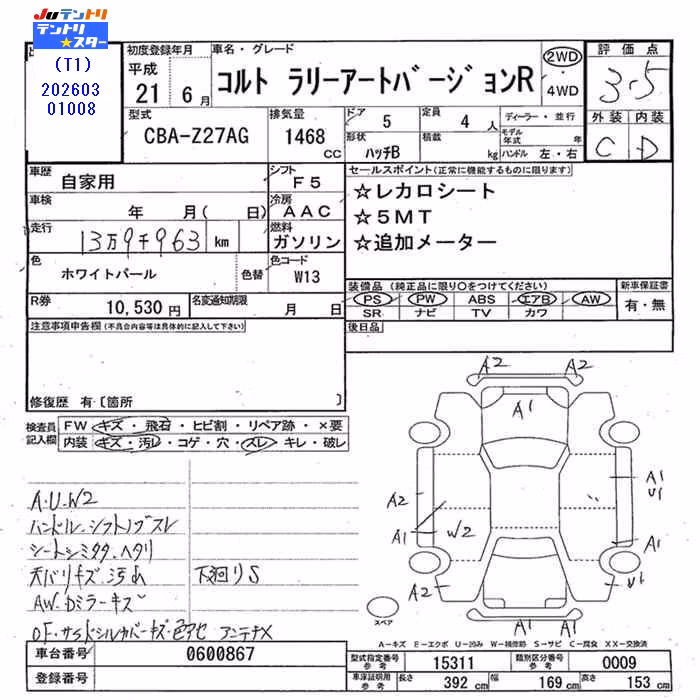 Juテントリ
テントリ
★スター
(T1)
202603
01008
初度登録年月
平成
21 6月
車名・グレード
コルト ラリーアートバージョンR
2WD
・
4WD
評価点
3.5
外装 内装
C D
型式
CBA-Z27AG
排気量
1468
CC
ドア
5
定員
4 人
形状
ハッチB
積載
kg
ディーラー・並行
モデル年式 年
ハンドル 左・右
車歴
自家用
シフト
F5
車検
年 月( 日)
冷房
AAC
走行
13万9千963 km
燃料
ガソリン
色
ホワイトパール
色替
色コード
W13
R券
10,530 円
名変通知期限
月 日
セールスポイント(正常に機能するものに限ります)
☆レカロシート
☆5MT
☆追加メーター
装備品 (純正品に限り○をつけてください)
新車保証書
PS PW ABS エアB AW
有・無
SR ナビ TV カワ
後日品
注意事項申告欄(不具合内容等は具体的に記入して下さい)
修復歴 有〔箇所 〕
検査員
記入欄
FW キズ・飛石・ヒビ割・リペア跡・×要
内装 キズ・汚レ・コゲ・穴・スレ・キレ・破レ
A・U・W2
ハンドル・シフトノブスレ
シートシミタタ・ヘタリ
天バリキズ・汚れ 下廻りS
AW・Dミラーキズ
アンテナX
A2 A2
A1
A2
A1
W2
A1
U1
A1
A2
U1
A1 A1
スペア
A-キズ E-エクボ U-凹み W-補修跡 S-サビ C-腐食 XX-交換済
車台番号
0600867
登録番号
型式指定番号
参考
15311
類別区分番号
参考
0009
車庫証明用
参考
長さ
392 cm
幅
169 cm
高さ
153 cm